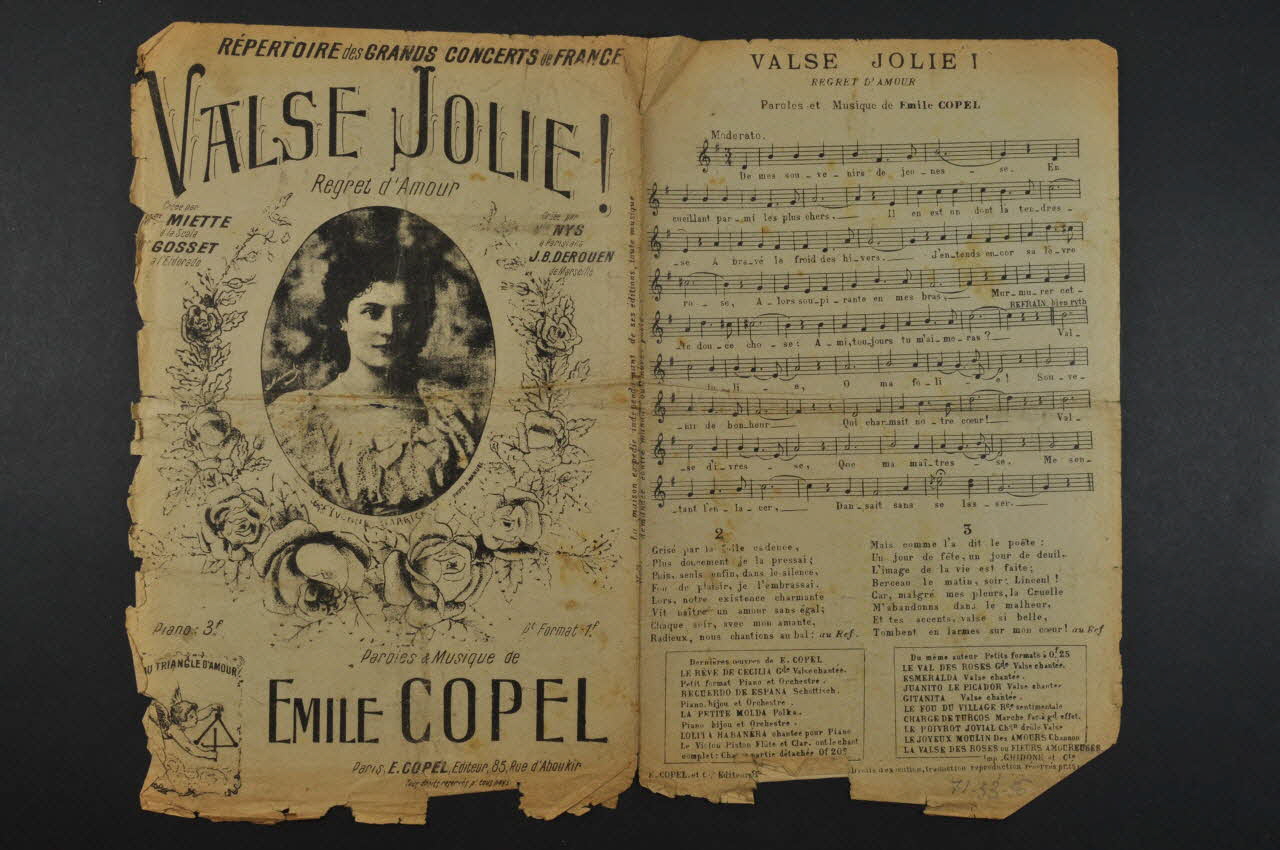 RÉPERTOIRE des GRANDS CONCERTS de FRANCE
VALSE JOLIE!
Regret d'Amour
Créée par
MIETTE
à la Scala
GOSSET
à l'Eldorado
Créée par
NYS
à Parisiana
J.B. DEROUEN
de Marseille
Piano: 3f
Pt Format 1f
AU TRIANGLE D'AMOUR
Paroles & Musique de
EMILE COPEL
Paris, E. COPEL, Editeur, 85, Rue d'Aboukir
Tous droits réservés pr tous pays
La maison expédie indépendamment de ses éditions, toute musique
VALSE JOLIE!
REGRET D'AMOUR
Paroles et Musique de Emile COPEL
Moderato.
De mes sou_ve_nirs de jeu_nes_se. En
cueillant par_mi les plus chers, Il en est un dont la ten_dres_
_se A bra_vé le froid des hi_vers. J'en_tends en_cor sa lè_vre
ro_se, A_lors sou_pi_rante en mes bras, Mur_mu_rer cet_
REFRAIN bien ryth
_te dou_ce cho_se: A_mi, tou_jours tu m'ai_me_ras? Val_
jo_li_e, O ma fo_li_e! Sou_ve_
_nir de bon_heur Qui char_mait no_tre cœur! Val_
_se d'i_vres_se, Que ma maî_tres_se. Me sen_
_tant l'en_la_cer, Dan_sait sans se las_ser.
2
Grisé par la folle cadence,
Plus doucement je la pressai;
Puis, seuls enfin, dans le silence,
Fou de plaisir, je l'embrassai.
Lors, notre existence charmante
Vit naître un amour sans égal;
Chaque soir, avec mon amante,
Radieux, nous chantions au bal: au Ref.
3
Mais comme l'a dit le poëte:
Un jour de fête, un jour de deuil.
L'image de la vie est faite;
Berceau le matin, soir: Linceul!
Car, malgré mes pleurs, la Cruelle
M'abandonna dans le malheur,
Et tes accents, valse si belle,
Tombent en larmes sur mon cœur! au Ref
Dernières œuvres de E. COPEL
LE RÊVE DE CECILIA Gde Valse chantée.
Petit format Piano et Orchestre.
RECUERDO DE ESPANA Schottisch.
Piano, bijou et Orchestre.
LA PETITE MOLDA Polka.
Piano bijou et Orchestre.
LOLITA HABANERA chantée pour Piano
Le Violon Piston Flûte et Clar. ont le chant
complet: Chaque partie détachée 0f 20c
Du même auteur Petits formats à 0f.25
LE VAL DES ROSES Gde Valse chantée.
ESMERALDA Valse chantée.
JUANITO LE PICADOR Valse chantée
GITANITA Valse chantée.
LE FOU DU VILLAGE Rce sentimentale
CHARGE DE TURCOS Marche fac. à gd effet.
LE POIVROT JOVIAL Chon drôle Valse
LE JOYEUX MOULIN Des AMOURS Chanson
LA VALSE DES ROSES ou FLEURS AMOUREUSES
Imp. GHIDONE et Cie
E. COPEL. et Cie Editeurs
Droits d'exécution, traduction reproduction réservés